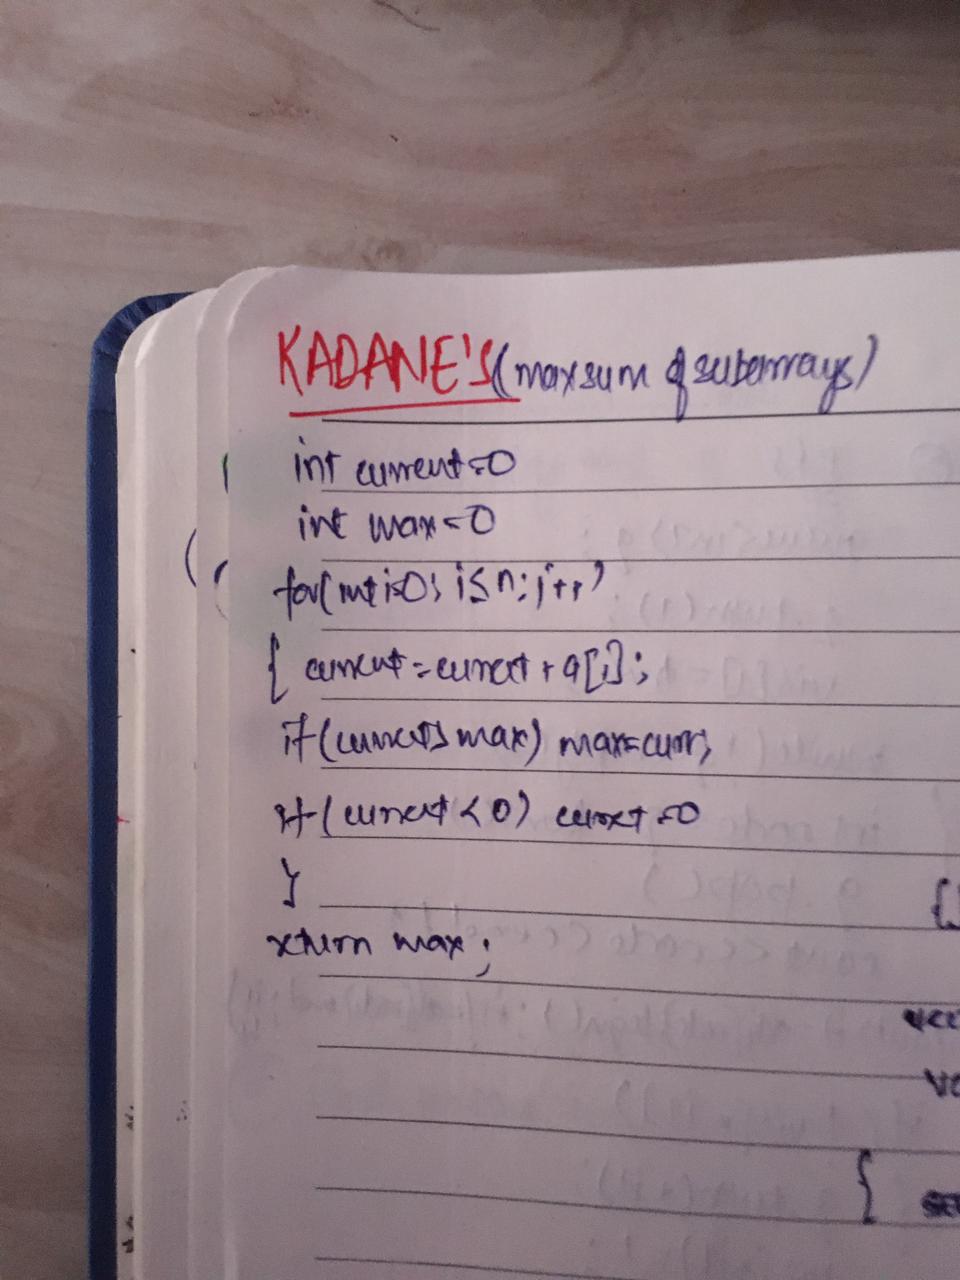 KADANE'S (max sum of subarrays)
int current=0
int max=0
for(int i=0; i≤n; i++)
{ current = current + a[i];
if(current> max) max=curr;
if(current < 0) current =0
}
return max;
{